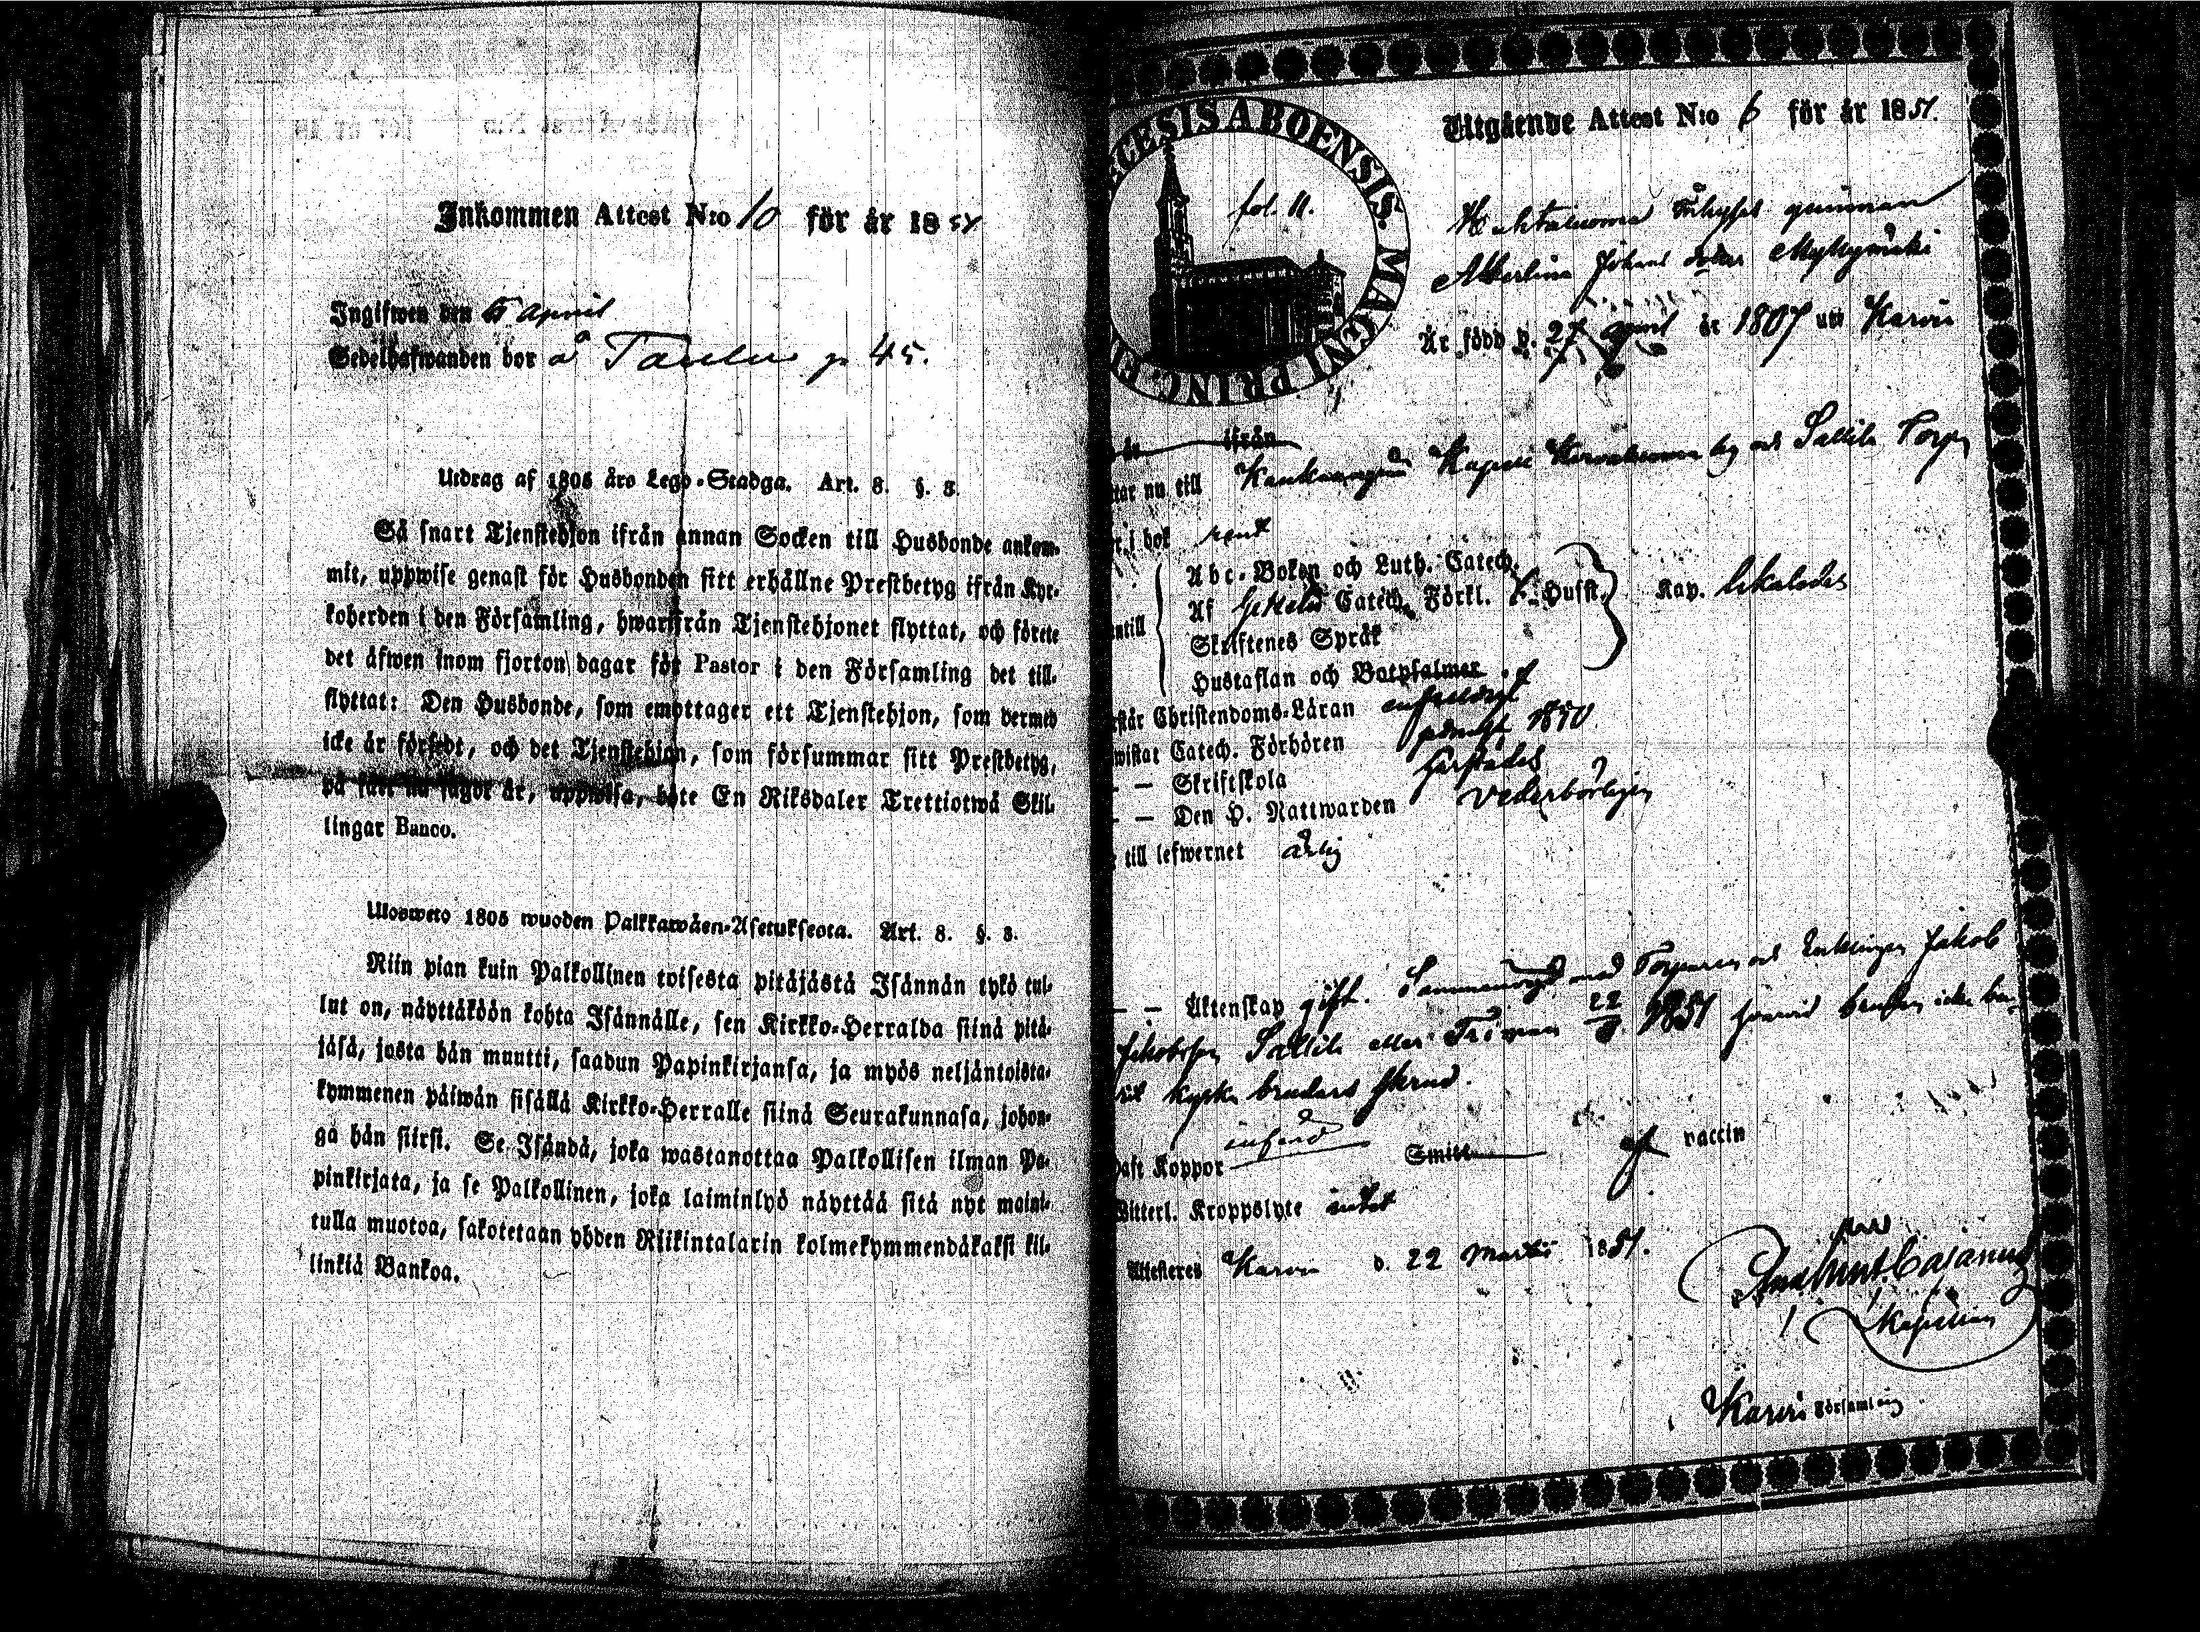 Inkommen Attest N:o 10 för år 1851
Ingifwen den 5 April
Sedelhafwanden bor å p 45.
Utdrag af 1805 års Lego-Stadga. Art. 8. §. 3.
Så snart Tjenstehjon ifrån annan Socken till Husbonde ankom-
mit, uppwise genast för Husbonden sitt erhållne Prestbetyg ifrån Kyr-
koherden i den Församling, hwarifrån Tjenstehjonet flyttat, och förete
det äfwen inom fjorton dagar för Pastor i den Församling det till-
flyttat: Den Husbonde, som emottager ett Tjenstehjon, som dermed
icke är försedt, och det Tjenstehjon, som försummar sitt Prestbetyg,
på sätt nu sagdt är, uppwisa, böte En Riksdaler Trettiotwå Skil-
lingar Banco.
Ulosweto 1805 wuoden Palkkawäen-Asetuksesta. Art. 8. §. 3.
Niin pian kuin Palkollinen toisesta pitäjästä Isännän tykö tul-
lut on, näyttäköön kohta Isännälle, sen Kirkko-Herralda siinä pitä-
jäsä, josta hän muutti, saadun Papinkirjansa, ja myös neljäntoista-
kymmenen päiwän sisällä Kirkko-Herralle siinä Seurakunnasa, johon-
ga hän siirsi. Se Isändä, joka wastanottaa Palkollisen ilman Pa-
pinkirjata, ja se Palkollinen, joka laiminlyö näyttää sitä nyt maini-
tulla muotoa, sakotetaan yhden Riikintalarin kolmekymmendäkaksi kil-
linkiä Bankoa.
ECESIS ABOENSIS. MAGNI PRINC. FI
fol. 11.
Utgående Attest N:o 6 för år 1851.
qwinnan
Albertina Johans dotter Myllymäki
Är född d. 27 April år 1807 uti Karvia
ifrån
tar nu till Kankaanpää Kapell by och Sallila Torp
r i bok rent
Abc-Boken och Luth. Catech.
Af Catech. Förkl. Hufst. Kap.
ntill Skriftenes Språk
Hustaflan och Botpsalmer
står Christendoms-Läran enfaldigt
wistat Catech. Förhören 1850
— — Skriftskola härstädes
— — Den H. Nattwarden vederbörligen
till lefwernet ärlig
— — Äktenskap gift. Sammanvigd med Torparen och Enklingen Jakob
Jakobsson Sallila eller 22/3 1851 hvarvid bruden icke
kyska brudars skrud.
haft Koppor Smitt af vaccin
Witterl. Kroppslyte intet
Attesteras Karvia d. 22 Martii 1851.
Cajanus
Kapellan
Karvia Församling